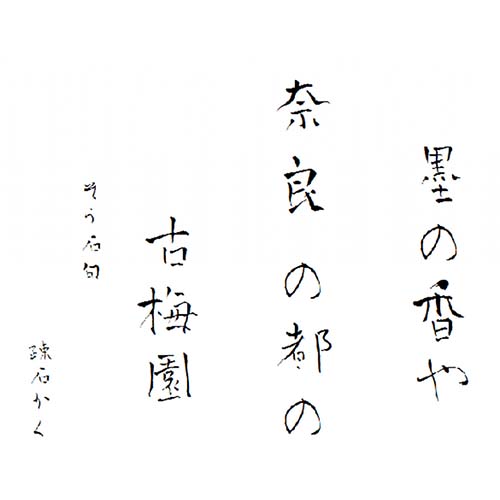 墨の香や
奈良の都の
古梅園
そう石句
疎石かく